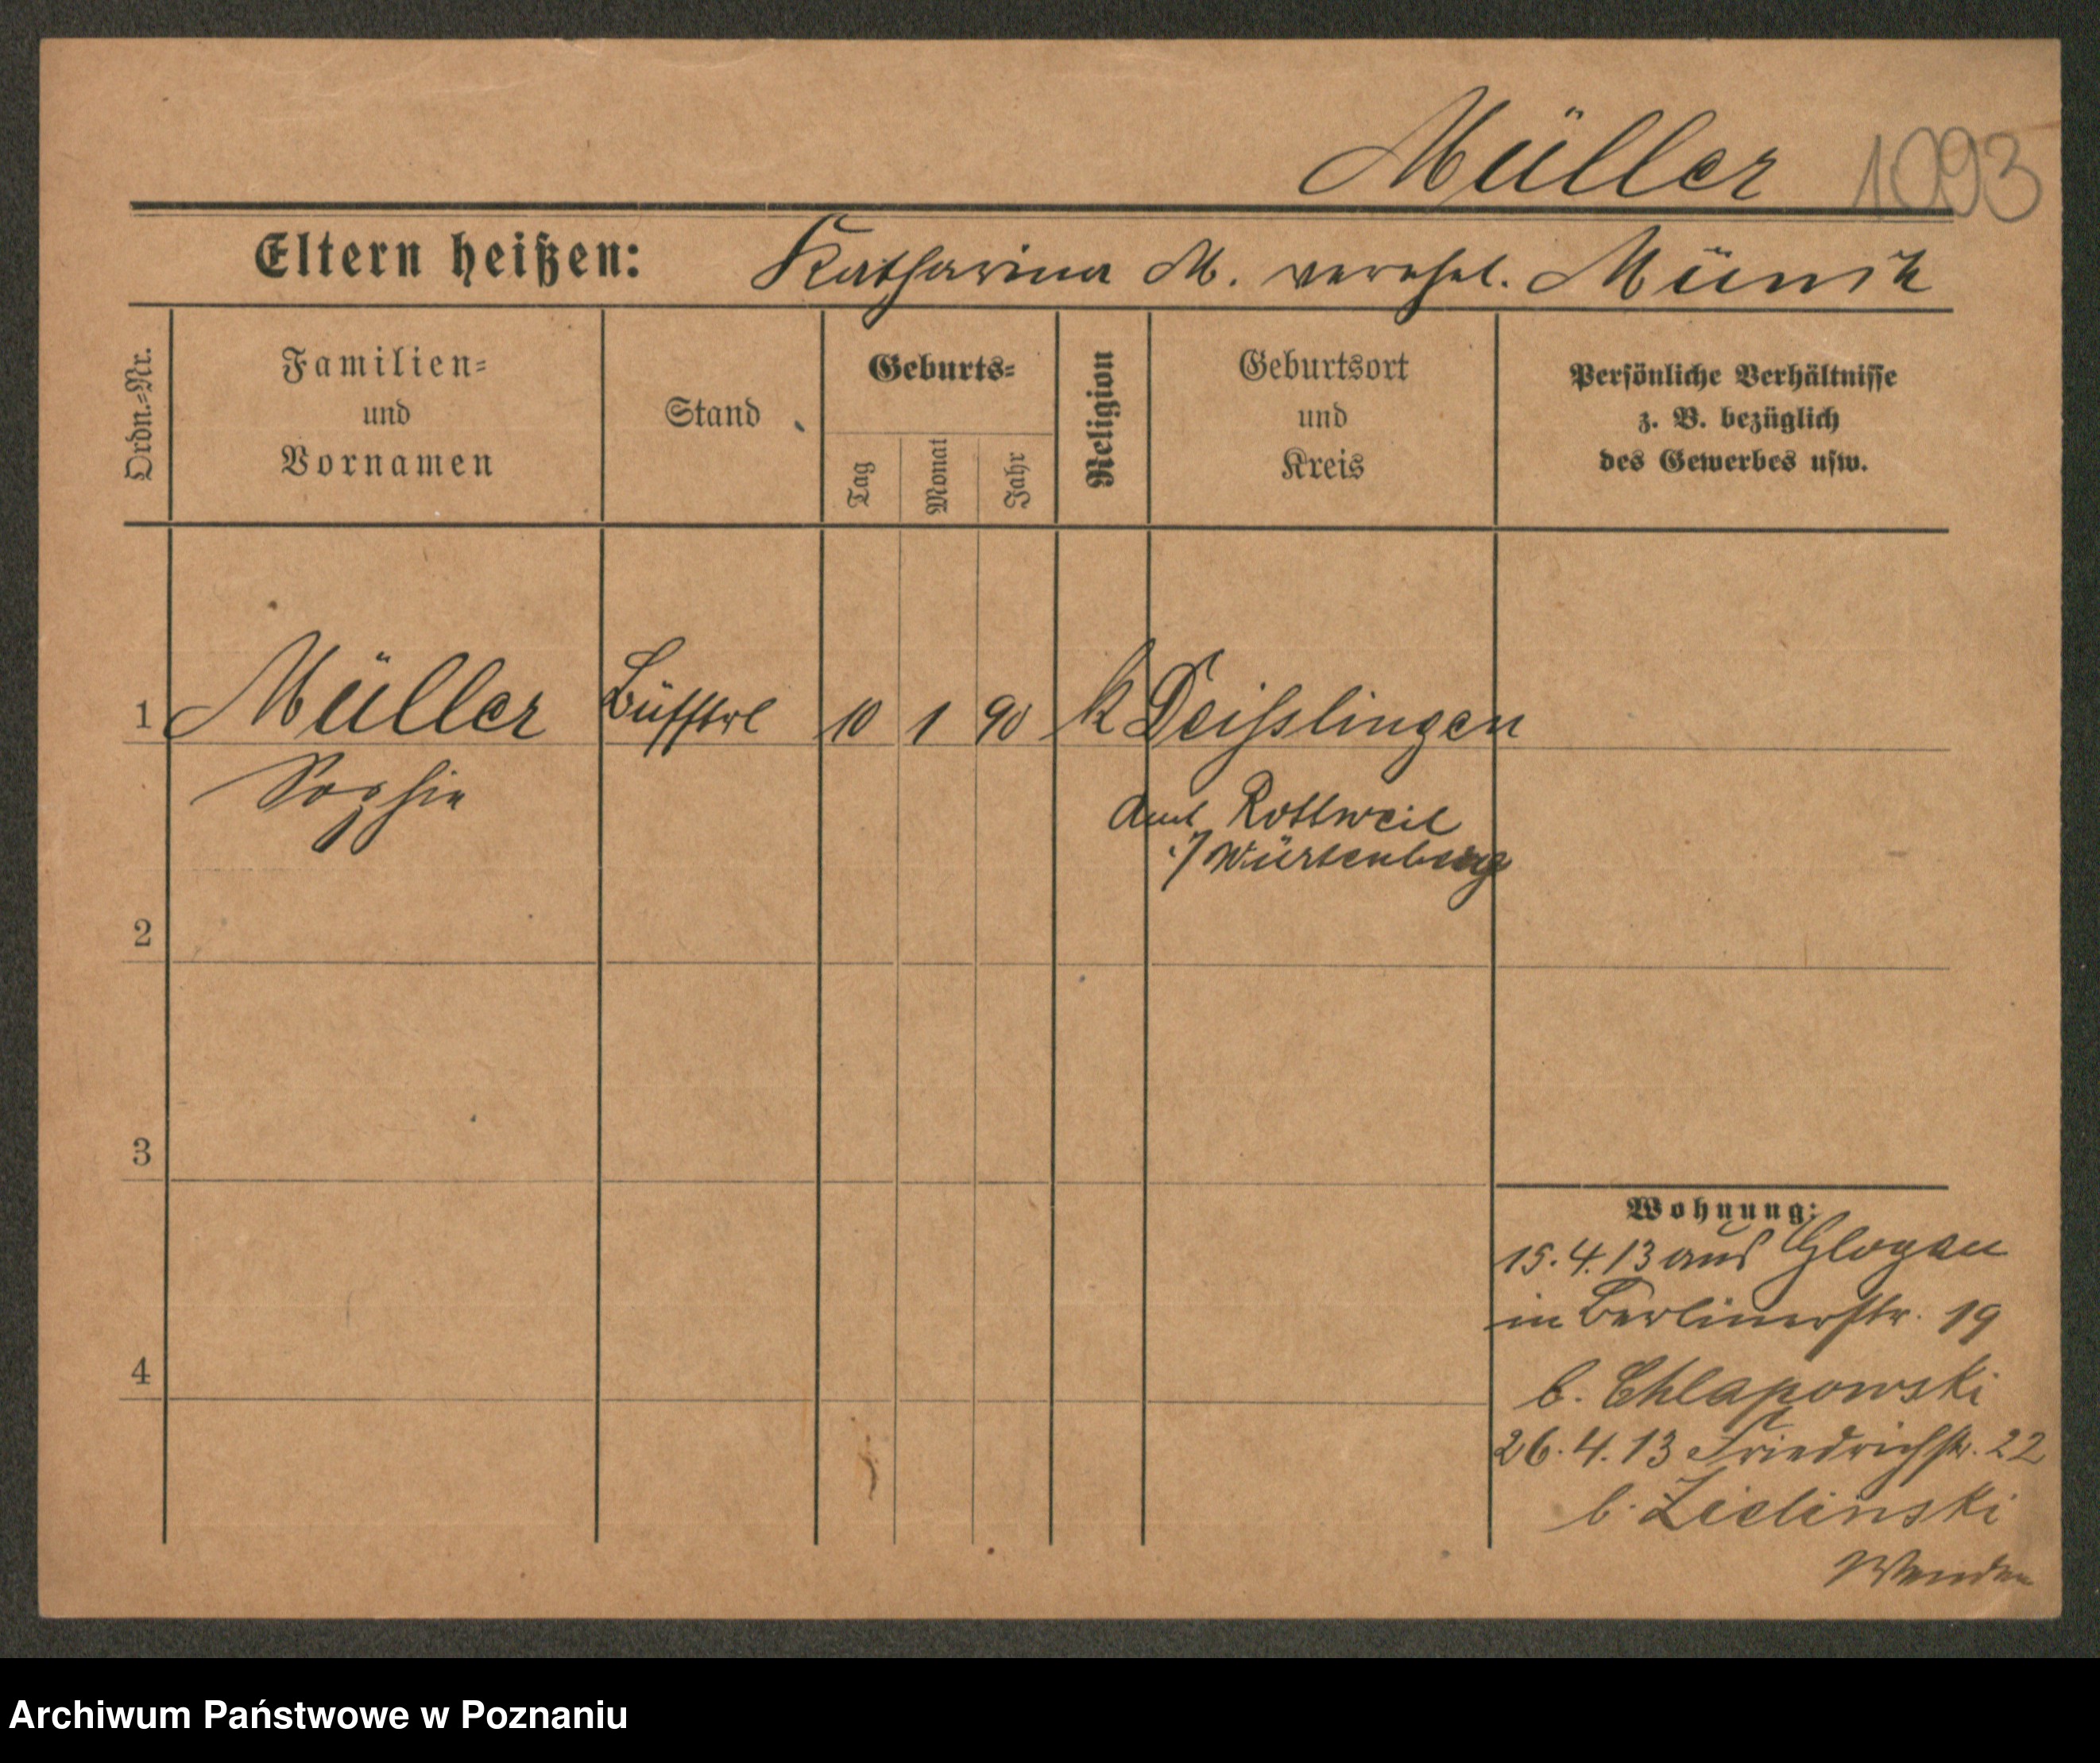 Müller 1093
Eltern heißen: Katharina M. verehel.
Ordn.=Nr.
Familien=
und
Vornamen
Stand
Geburts=
Tag
Monat
Jahr
Religion
Geburtsort
und
Kreis
Persönliche Verhältnisse
z. B. bezüglich
des Gewerbes usw.
1 Müller Büfftrl 10 1 90 k Deisslingen
Sophie
Amt Rottweil
i/Würtenberg
2
3
4
Wohnung:
15.4.13 aus Glogau
in Berlinerstr. 19
b. Chlapowski
26.4.13 Friedrichstr. 22
b. Zielinski
Wenden
Archiwum Państwowe w Poznaniu